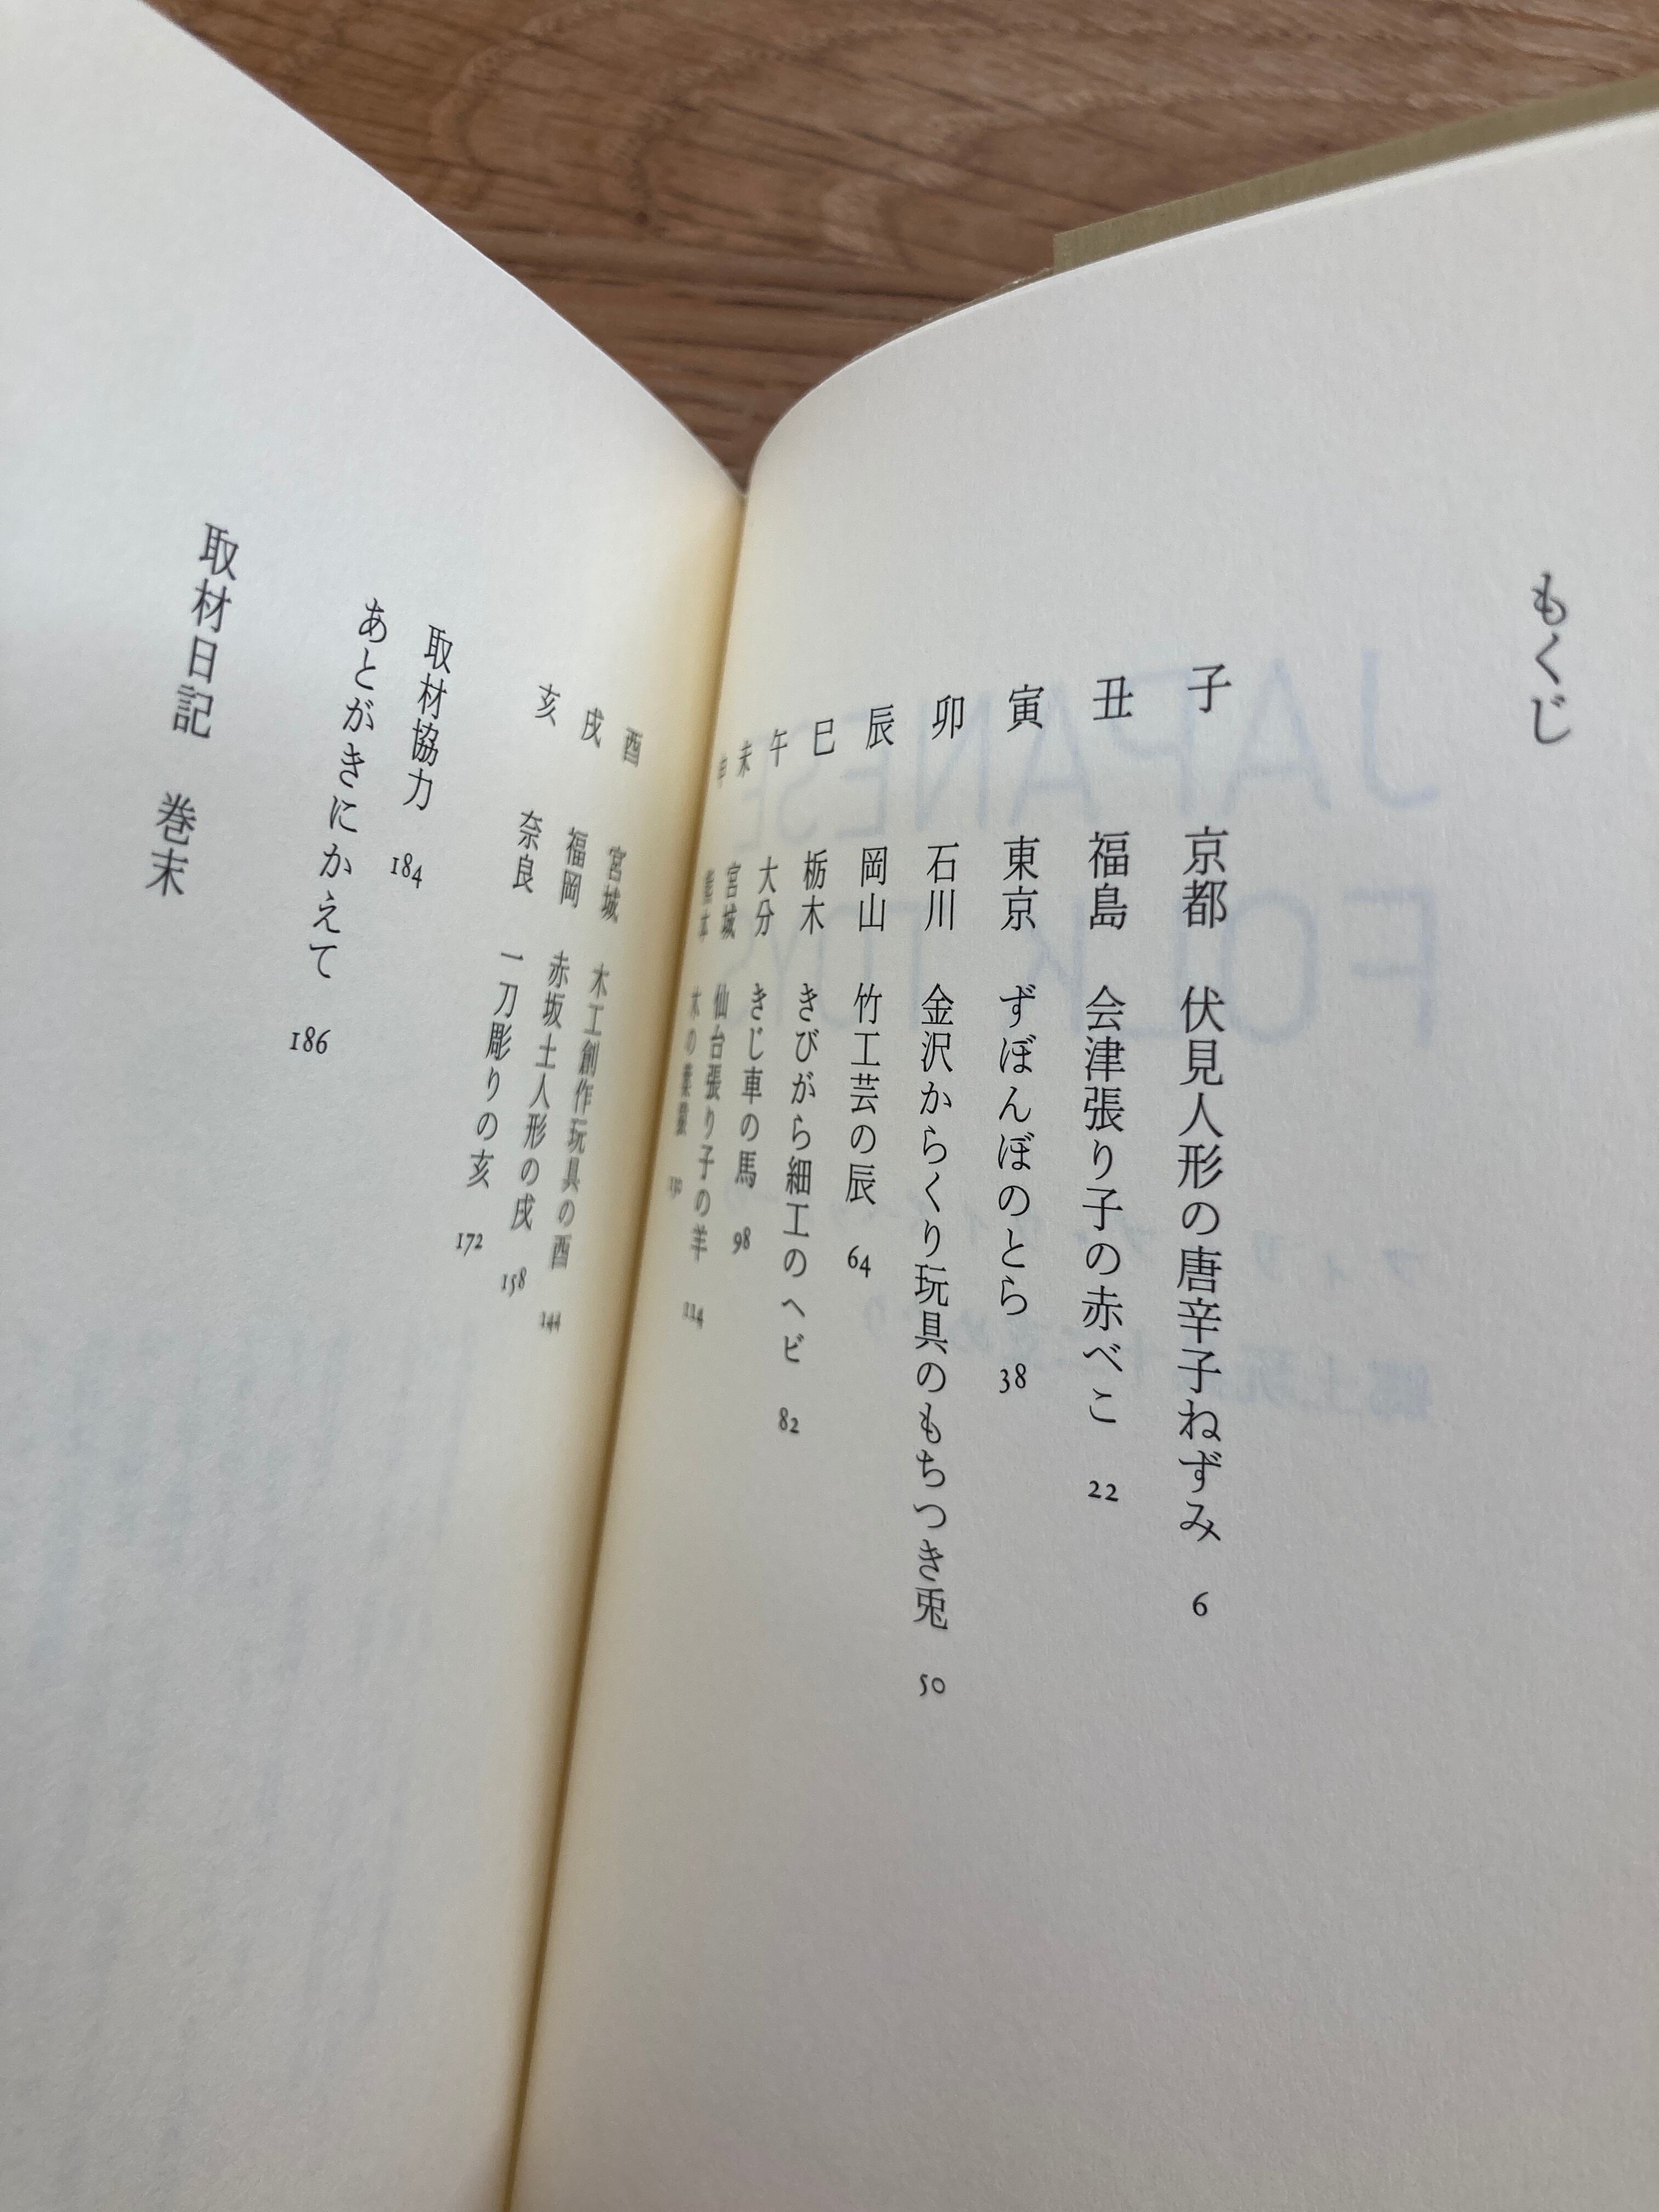 もくじ
子 京都 伏見人形の唐辛子ねずみ 6
丑 福島 会津張り子の赤べこ 22
寅 東京 ずぼんぼのとら 38
卯 石川 金沢からくり玩具のもちつき兎 50
辰 岡山 竹工芸の辰 64
巳 栃木 きびがら細工のヘビ 82
午 大分 きじ車の馬 98
未 宮城 仙台張り子の羊 114
申 熊本 木の葉猿 130
酉 宮城 木工創作玩具の酉 144
戌 福岡 赤坂土人形の戌 158
亥 奈良 一刀彫りの亥 172
取材協力 184
あとがきにかえて 186
取材日記 巻末